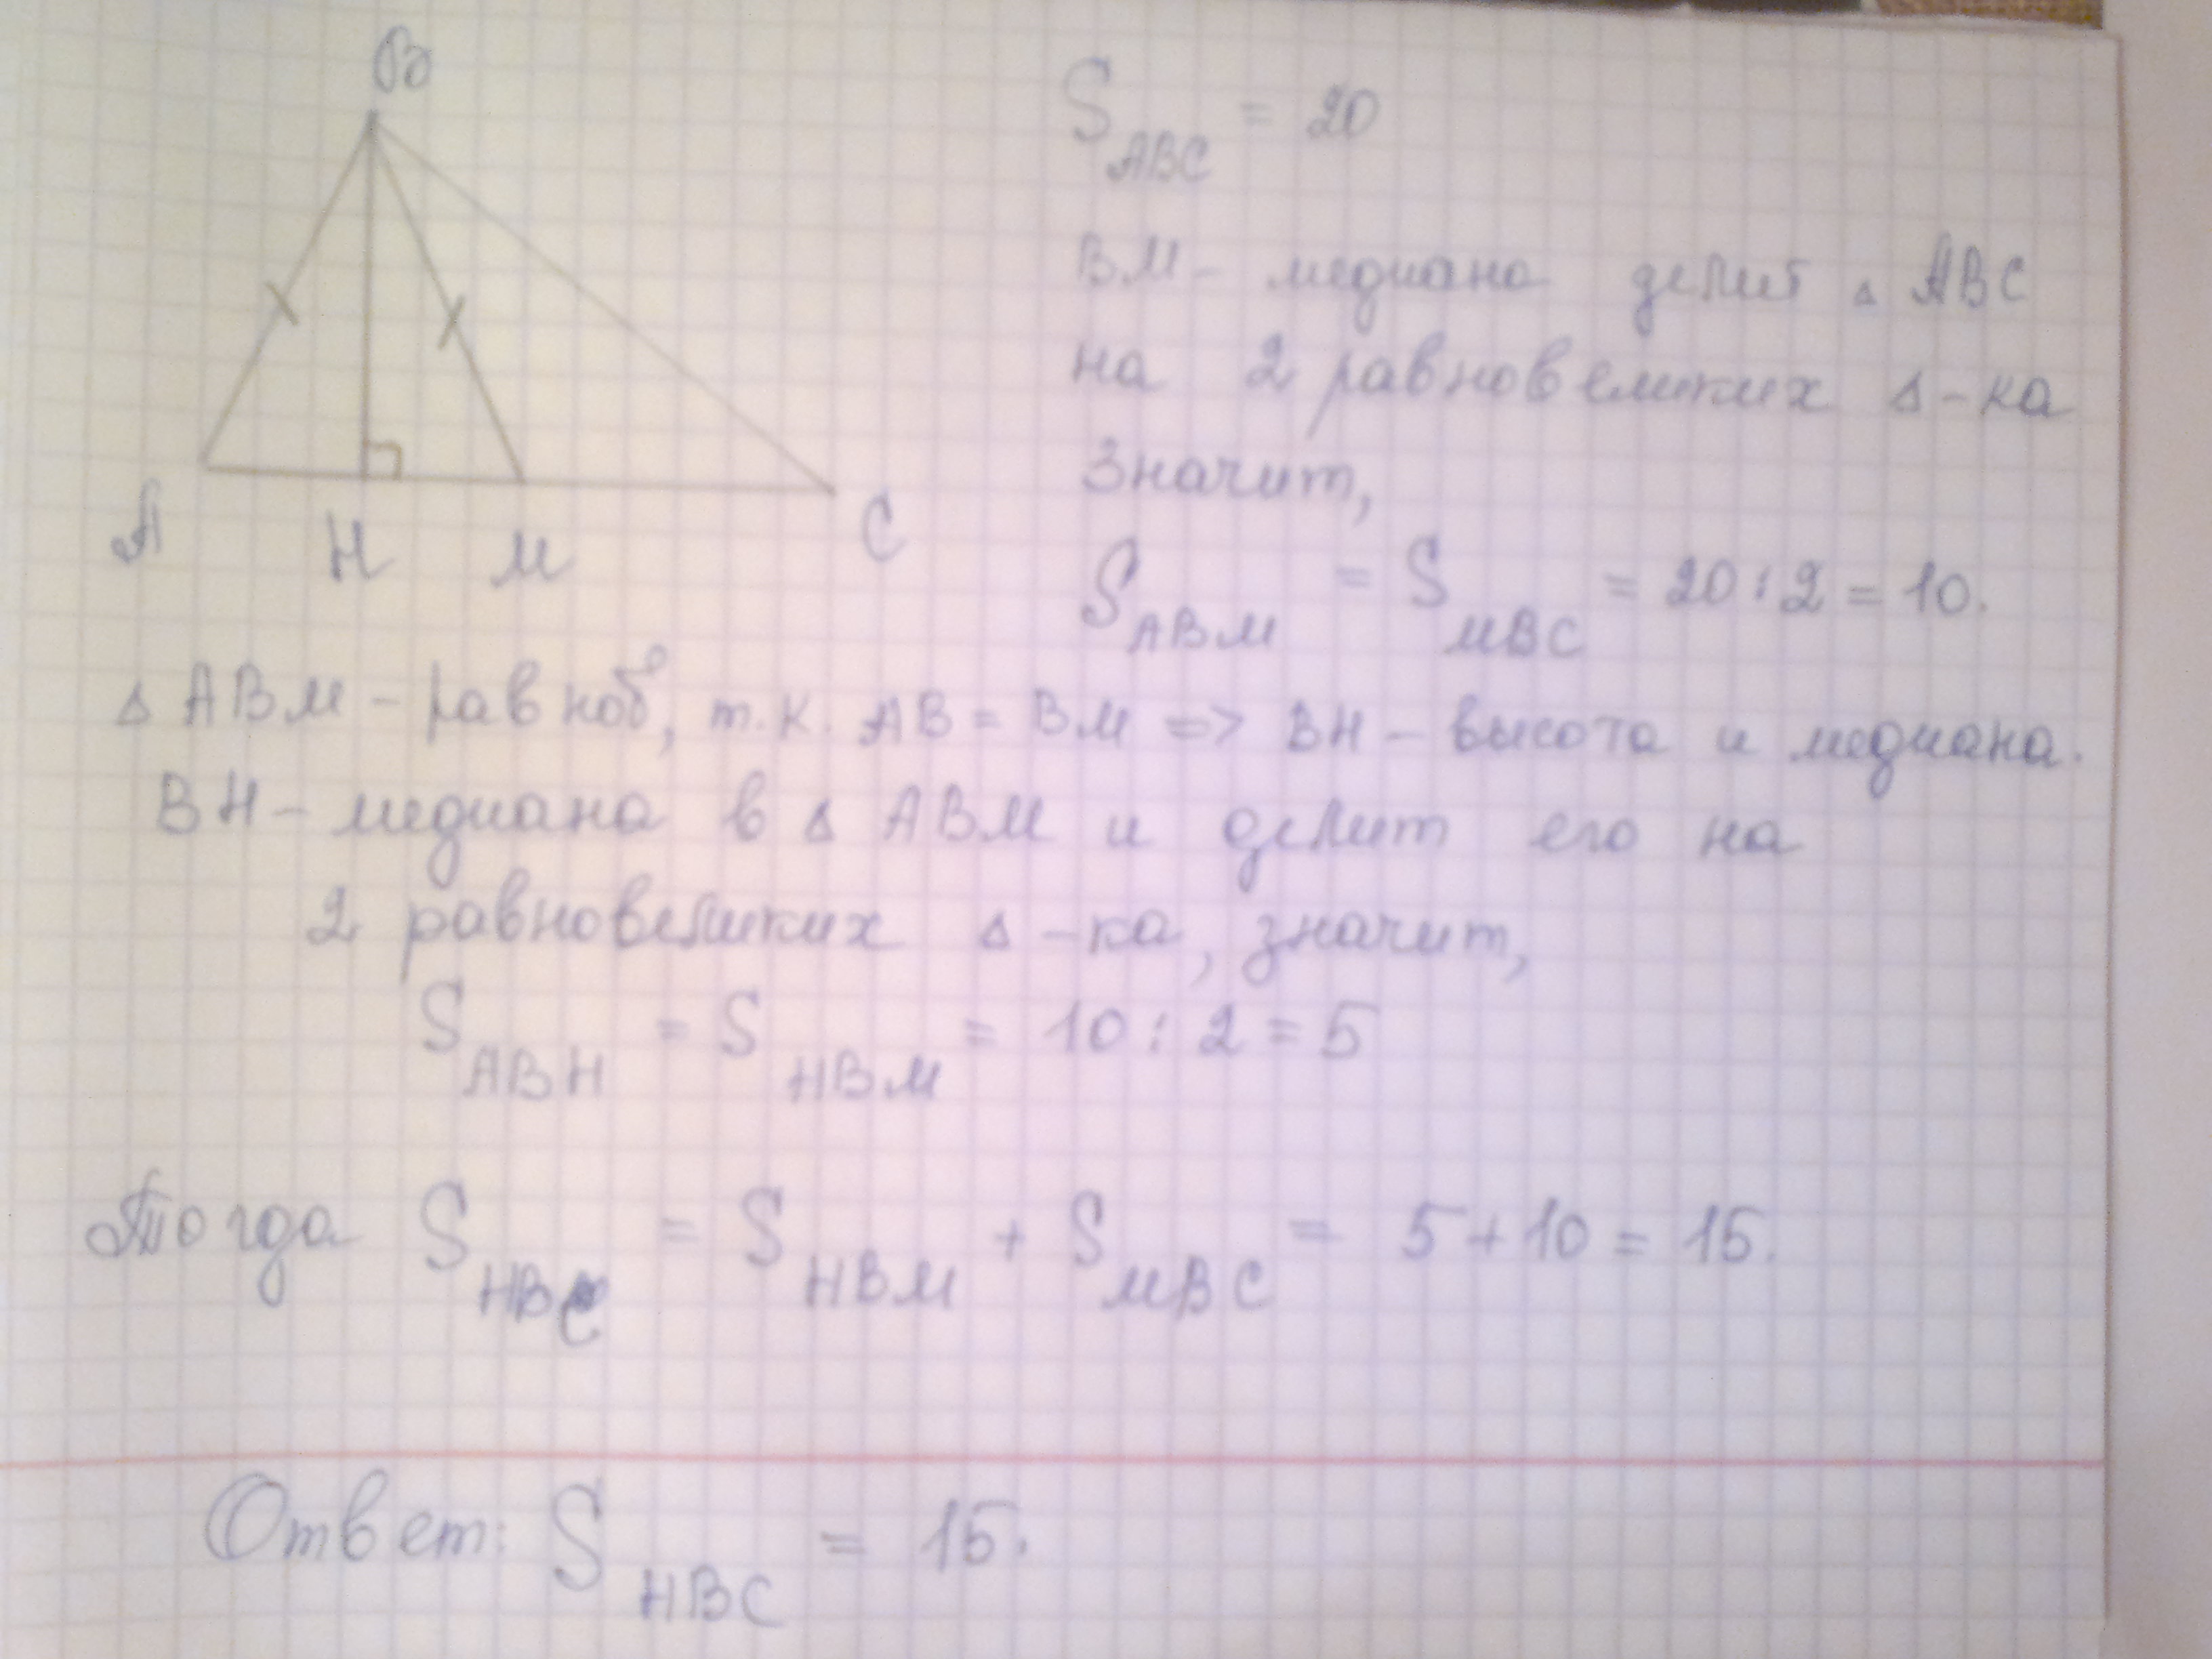 B
A H M C
S ABC = 20
BM - медиана делит Δ ABC
на 2 равновеликих Δ-ка
Значит,
S ABM = S MBC = 20 : 2 = 10.
Δ ABM - равноб, т.к. AB = BM => BH - высота и медиана.
BH - медиана в Δ ABM и делит его на
2 равновеликих Δ-ка, значит,
S ABH = S HBM = 10 : 2 = 5
Тогда S HBC = S HBM + S MBC = 5 + 10 = 15.
Ответ: S HBC = 15.